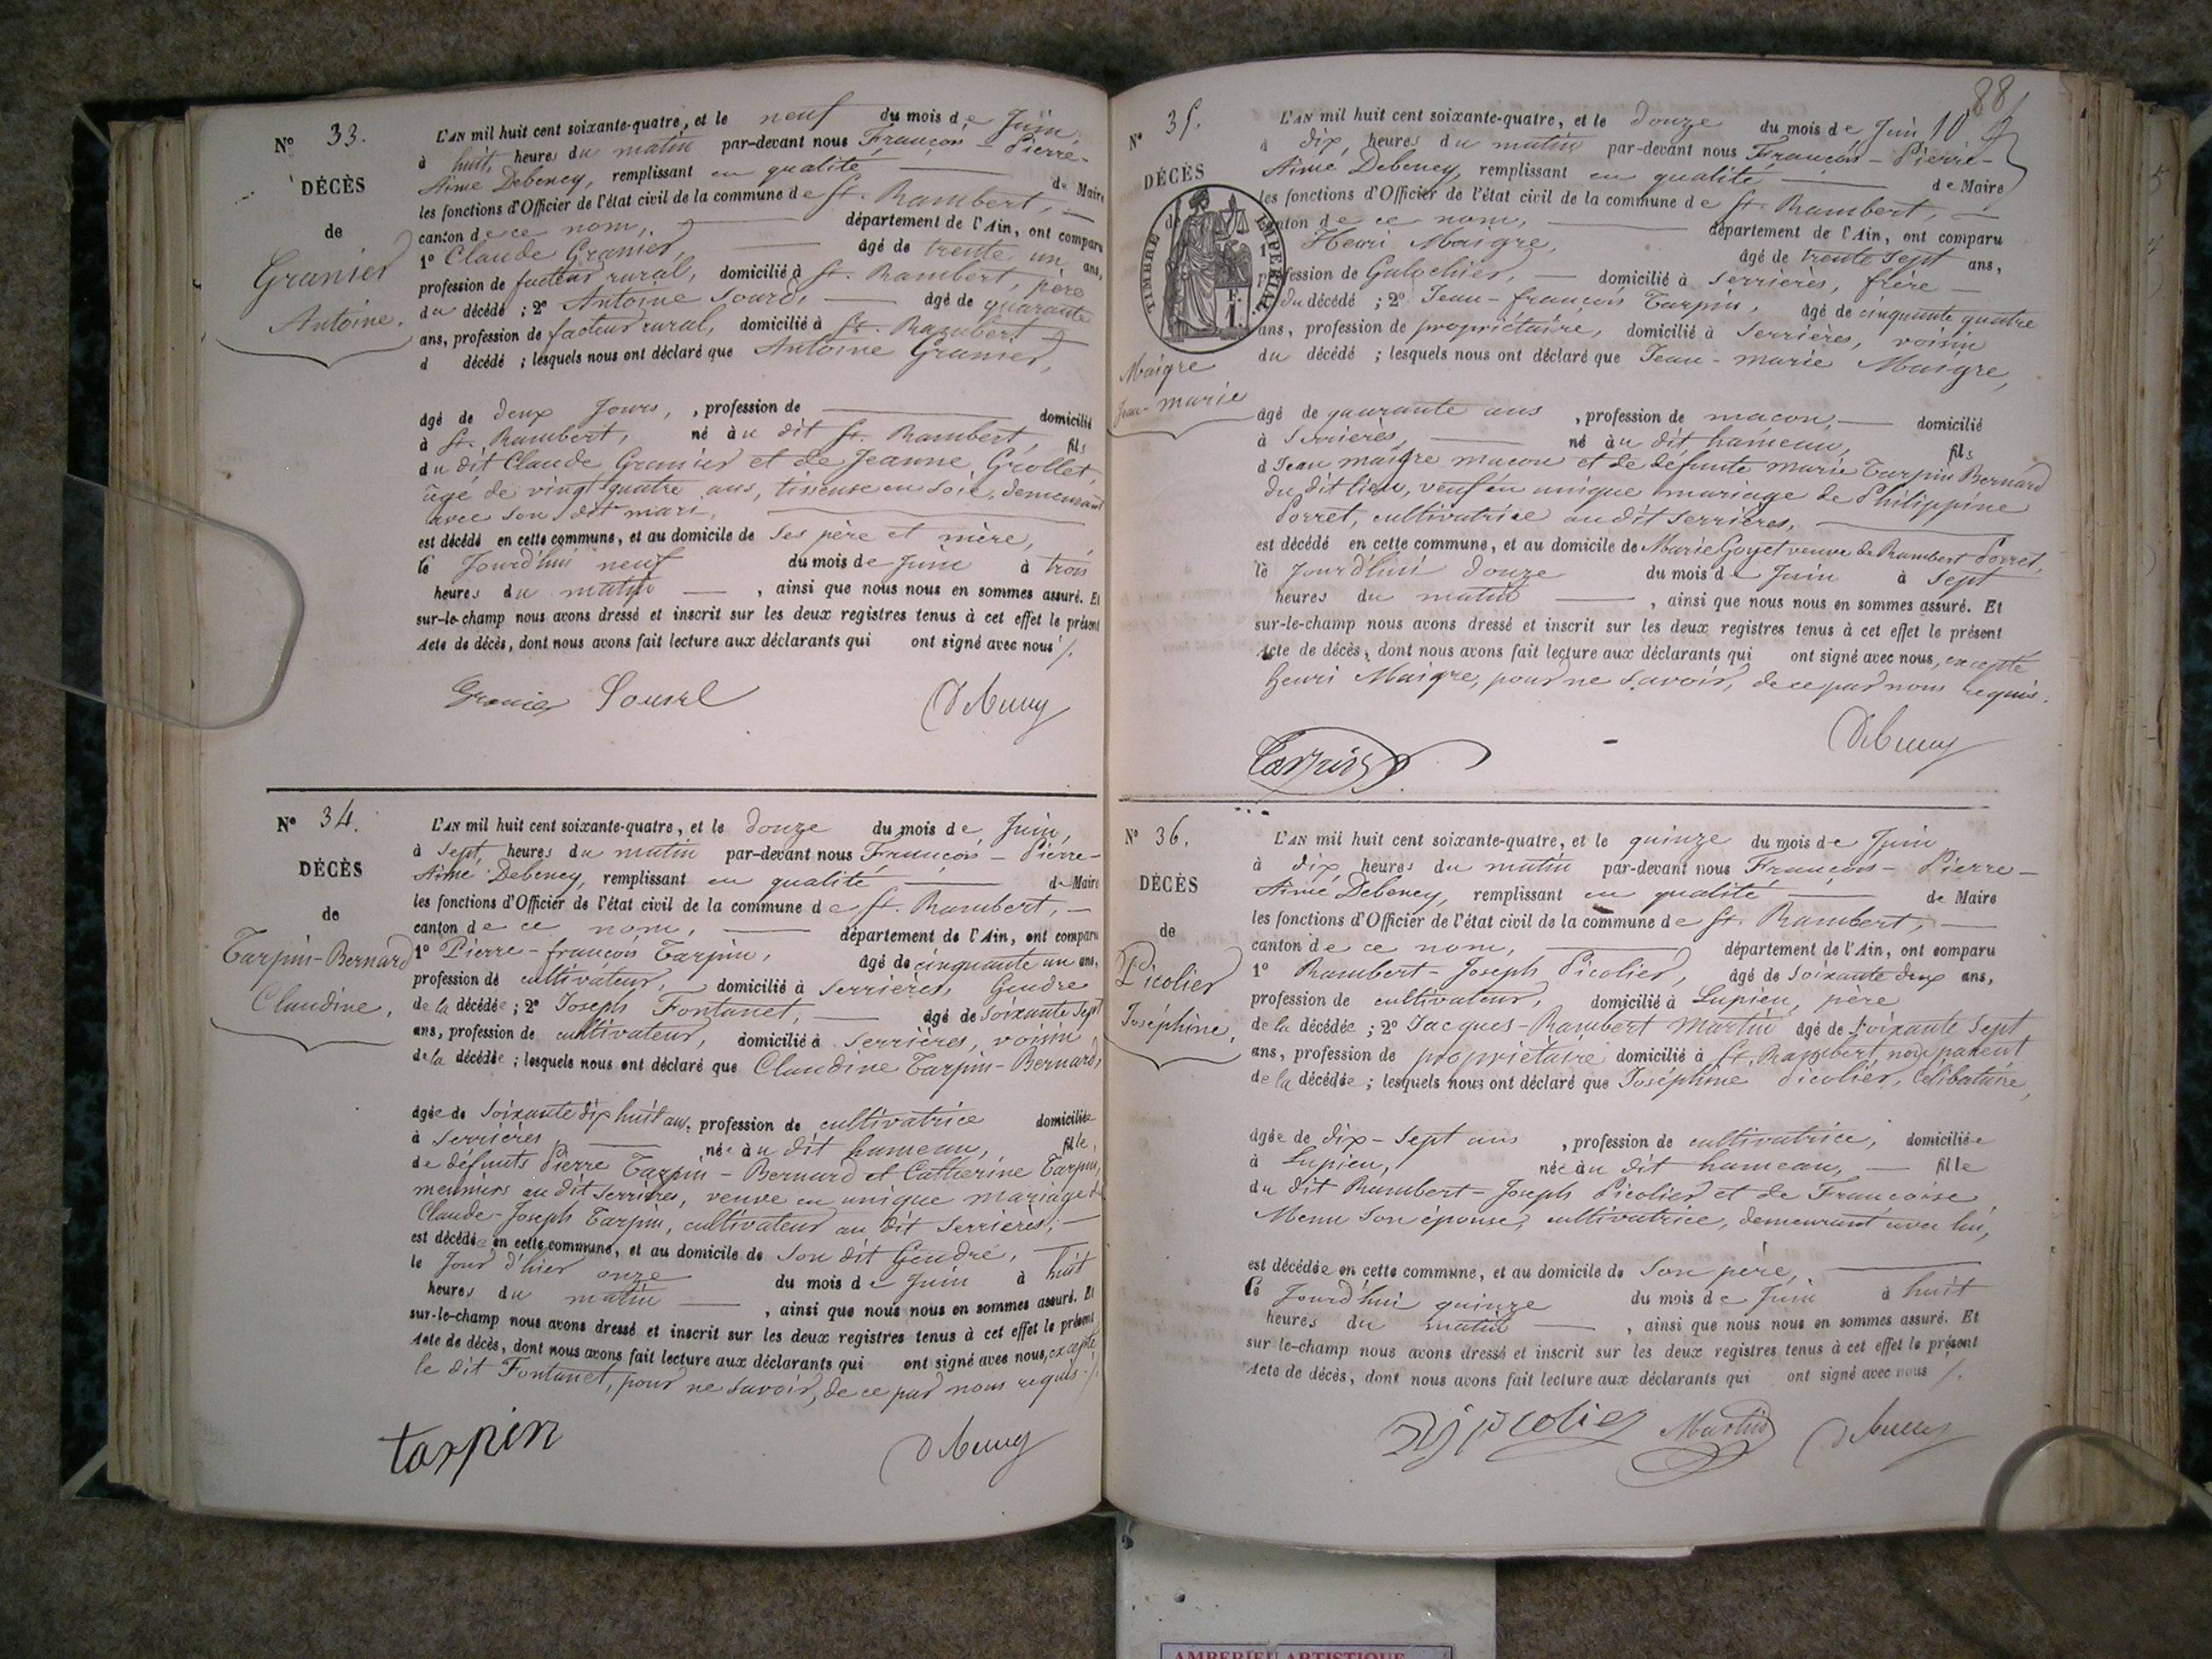 N° 33.
DÉCÈS
de
Granier
Antoine.
L'AN mil huit cent soixante-quatre, et le neuf du mois de Juin,
à huit, heures du matin par-devant nous François - Pierre-
Aimé Debeney, remplissant en qualité de Maire
les fonctions d'Officier de l'état civil de la commune de St. Rambert,
canton de ce nom, département de l'Ain, ont comparu
1° Claude Granier, âgé de trente un ans,
profession de facteur rural, domicilié à St. Rambert, père
du décédé ; 2° Antoine Sourd, âgé de quarante
ans, profession de facteur rural, domicilié à St. Rambert
d décédé ; lesquels nous ont déclaré que Antoine Granier,
âgé de deux Jours, , profession de domicilié
à St. Rambert, né àu dit St. Rambert, fils
du dit Claude Granier et de Jeanne Grollet,
âgé de vingt quatre ans, tisseuse en soie, demeurant
avec son dit mari,
est décédé en cette commune, et au domicile de ses père et mère,
le Jourd'hui neuf du mois de Juin à trois
heures du matin , ainsi que nous nous en sommes assuré. Et
sur-le-champ nous avons dressé et inscrit sur les deux registres tenus à cet effet le présent
Acte de décès, dont nous avons fait lecture aux déclarants qui ont signé avec nous /.
Granier Sourd Debeney
N° 34.
DÉCÈS
de
Tarpin-Bernard
Claudine,
L'AN mil huit cent soixante-quatre, et le douze du mois de Juin,
à sept, heures du matin par-devant nous François - Pierre-
Aimé Debeney, remplissant en qualité de Maire
les fonctions d'Officier de l'état civil de la commune de St. Rambert,
canton de ce nom, département de l'Ain, ont comparu
1° Pierre-françois Tarpin, âgé de cinquante un ans,
profession de cultivateur, domicilié à Serrières, Gendre
de la décédée ; 2° Joseph Fontanet, âgé de soixante sept
ans, profession de cultivateur, domicilié à Serrières, voisin
de la décédée ; lesquels nous ont déclaré que Claudine Tarpin-Bernard,
âgée de soixante dix huit ans, profession de cultivatrice domiciliée
à Serrières, née àu dit hameau, fille,
de défunts Pierre Tarpin - Bernard et Catherine Tarpin,
meuniers au dit Serrières, veuve en unique mariage de
Claude-Joseph Tarpin, cultivateur au dit Serrières,
est décédée en cette commune, et au domicile de son dit Gendre,
le Jour d'hier onze du mois de Juin à huit
heures du matin , ainsi que nous nous en sommes assuré. Et
sur-le-champ nous avons dressé et inscrit sur les deux registres tenus à cet effet le présent
Acte de décès, dont nous avons fait lecture aux déclarants qui ont signé avec nous, excepté
le dit Fontanet, pour ne savoir, de ce par nous requis./.
tarpin Debeney
88
N° 35.
DÉCÈS
de
TIMBRE IMPÉRIAL
1 F.
Maigre
Jean-marie
L'AN mil huit cent soixante-quatre, et le douze du mois de Juin 10
à dix, heures du matin par-devant nous François - Pierre-
Aimé Debeney, remplissant en qualité de Maire
les fonctions d'Officier de l'état civil de la commune de St. Rambert,
canton de ce nom, département de l'Ain, ont comparu
1° Henri Maigre, âgé de trente sept ans,
profession de Galochier, domicilié à Serrières, frère
du décédé ; 2° Jean-françois Tarpin, âgé de cinquante quatre
ans, profession de propriétaire, domicilié à Serrières, voisin
du décédé ; lesquels nous ont déclaré que Jean-marie Maigre,
âgé de quarante ans , profession de macon, domicilié
à Serrières, né àu dit hameau, fils
d Jean maigre macon et de défunte Marie Tarpin Bernard
du dit lieu, veuf en unique mariage de Philippine
Porret, cultivatrice au dit Serrières,
est décédé en cette commune, et au domicile de Marie Goyet veuve de Rambert Porret,
le Jourd'hui douze du mois de Juin à sept
heures du matin , ainsi que nous nous en sommes assuré. Et
sur-le-champ nous avons dressé et inscrit sur les deux registres tenus à cet effet le présent
Acte de décès, dont nous avons fait lecture aux déclarants qui ont signé avec nous, excepté
henri Maigre, pour ne savoir, de ce par nous requis.
Debeney
Tarpin
N° 36.
DÉCÈS
de
Picolier
Joséphine,
L'AN mil huit cent soixante-quatre, et le quinze du mois de Juin
à dix heures du matin par-devant nous François - Pierre-
Aimé Debeney, remplissant en qualité de Maire
les fonctions d'Officier de l'état civil de la commune de St. Rambert,
canton de ce nom, département de l'Ain, ont comparu
1° Rambert-Joseph Picolier, âgé de soixante deux ans,
profession de cultivateur, domicilié à Lupieu, père
de la décédée ; 2° Jacques-Rambert Martin âgé de soixante sept
ans, profession de propriétaire domicilié à St. Rambert, non parent
de la décédée ; lesquels nous ont déclaré que Joséphine Picolier, Célibataire,
âgée de dix-sept ans , profession de cultivatrice, domiciliée
à Lupieu, née àu dit hameau, fille
du dit Rambert-Joseph Picolier et de Francoise
Menu son épouse, cultivatrice, demeurant avec lui,
est décédée en cette commune, et au domicile de son père,
le Jourd'hui quinze du mois de Juin à huit
heures du matin , ainsi que nous nous en sommes assuré. Et
sur-le-champ nous avons dressé et inscrit sur les deux registres tenus à cet effet le présent
Acte de décès, dont nous avons fait lecture aux déclarants qui ont signé avec nous /.
picolier Martin Debeney
AMBERIEU ARTISTIQUE